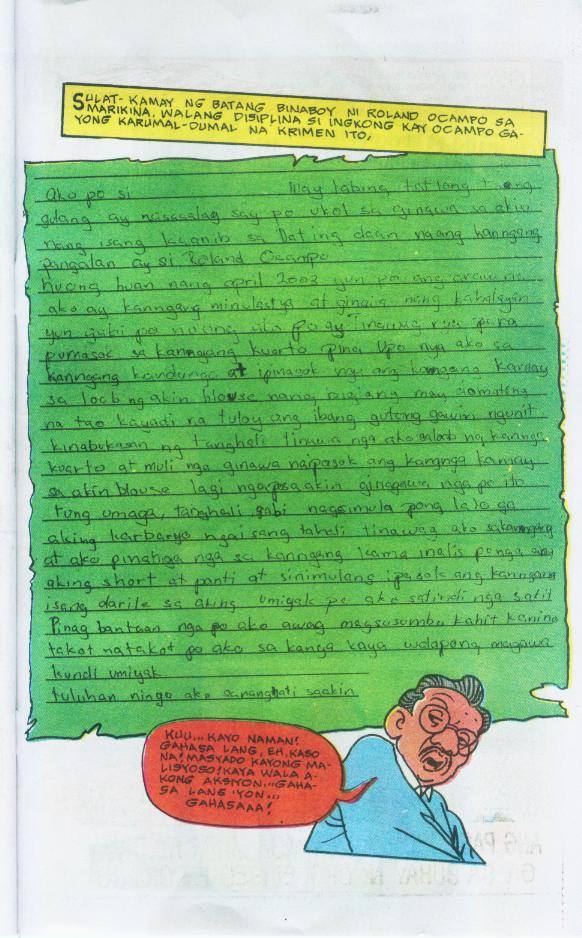 SULAT-KAMAY NG BATANG BINABOY NI ROLAND OCAMPO SA
MARIKINA. WALANG DISIPLINA SI INGKONG KAY OCAMPO GA-
YONG KARUMAL-DUMAL NA KRIMEN ITO.
Ako po si May labing tatlang taong
gulang ay nasasalaysay po ukol sa ginawa sa akin
nang isang kaanib sa Dating daan ngang kanngang
pangalan ay si Roland Ocampo
huong huan nang april 2003 yun pa ang araw na
ako ay kanngang minulastya at ginawa nang kahalayan
yun gabi po nuong una po ay Tinawag nya ipara
pumasok sa kanngang kuarto pina Upo nya ako sa
kanngang kandungan at ipinasok nya ang kanngang kamay
sa loob ng akin blouse nang biglang may dumating
na tao kaya di na tuloy ang ibang gustong gawin ngunit
kinabukasan ng tanghali tinawa nga ako sa loob ng kannga
kuarto at muli nga ginawa naipasok ang kannga kamay
sa akin blouse lagi nga po sa akin ginagawa nga po ito
tung umaga, tanghali, gabi nagsimula pong
aking isang tinawag ako sa kanngang
at ako pinahiga nga sa kanngang kama inalis pa nga ang
aking short at panti at sinimulang ipasok ang kanngang
isang darile sa aking umiyak po ako satindi nga sakit
Pinag bantaan nga po ako awag magsusumbu kahit kanino
takot natakot po ako sa kanya kaya wala pong magawa
kundi umiyak
tuluhan ninyo ako sa nanghati saakin
KUU... KAYO NAMAN!
GAHASA LANG, EH, KASO
NA! MASYADO KAYONG MA-
LISYOSO! KAYA WALA A-
KONG AKSIYON... GAHA-
SA LANG 'YON...
GAHASAAA!